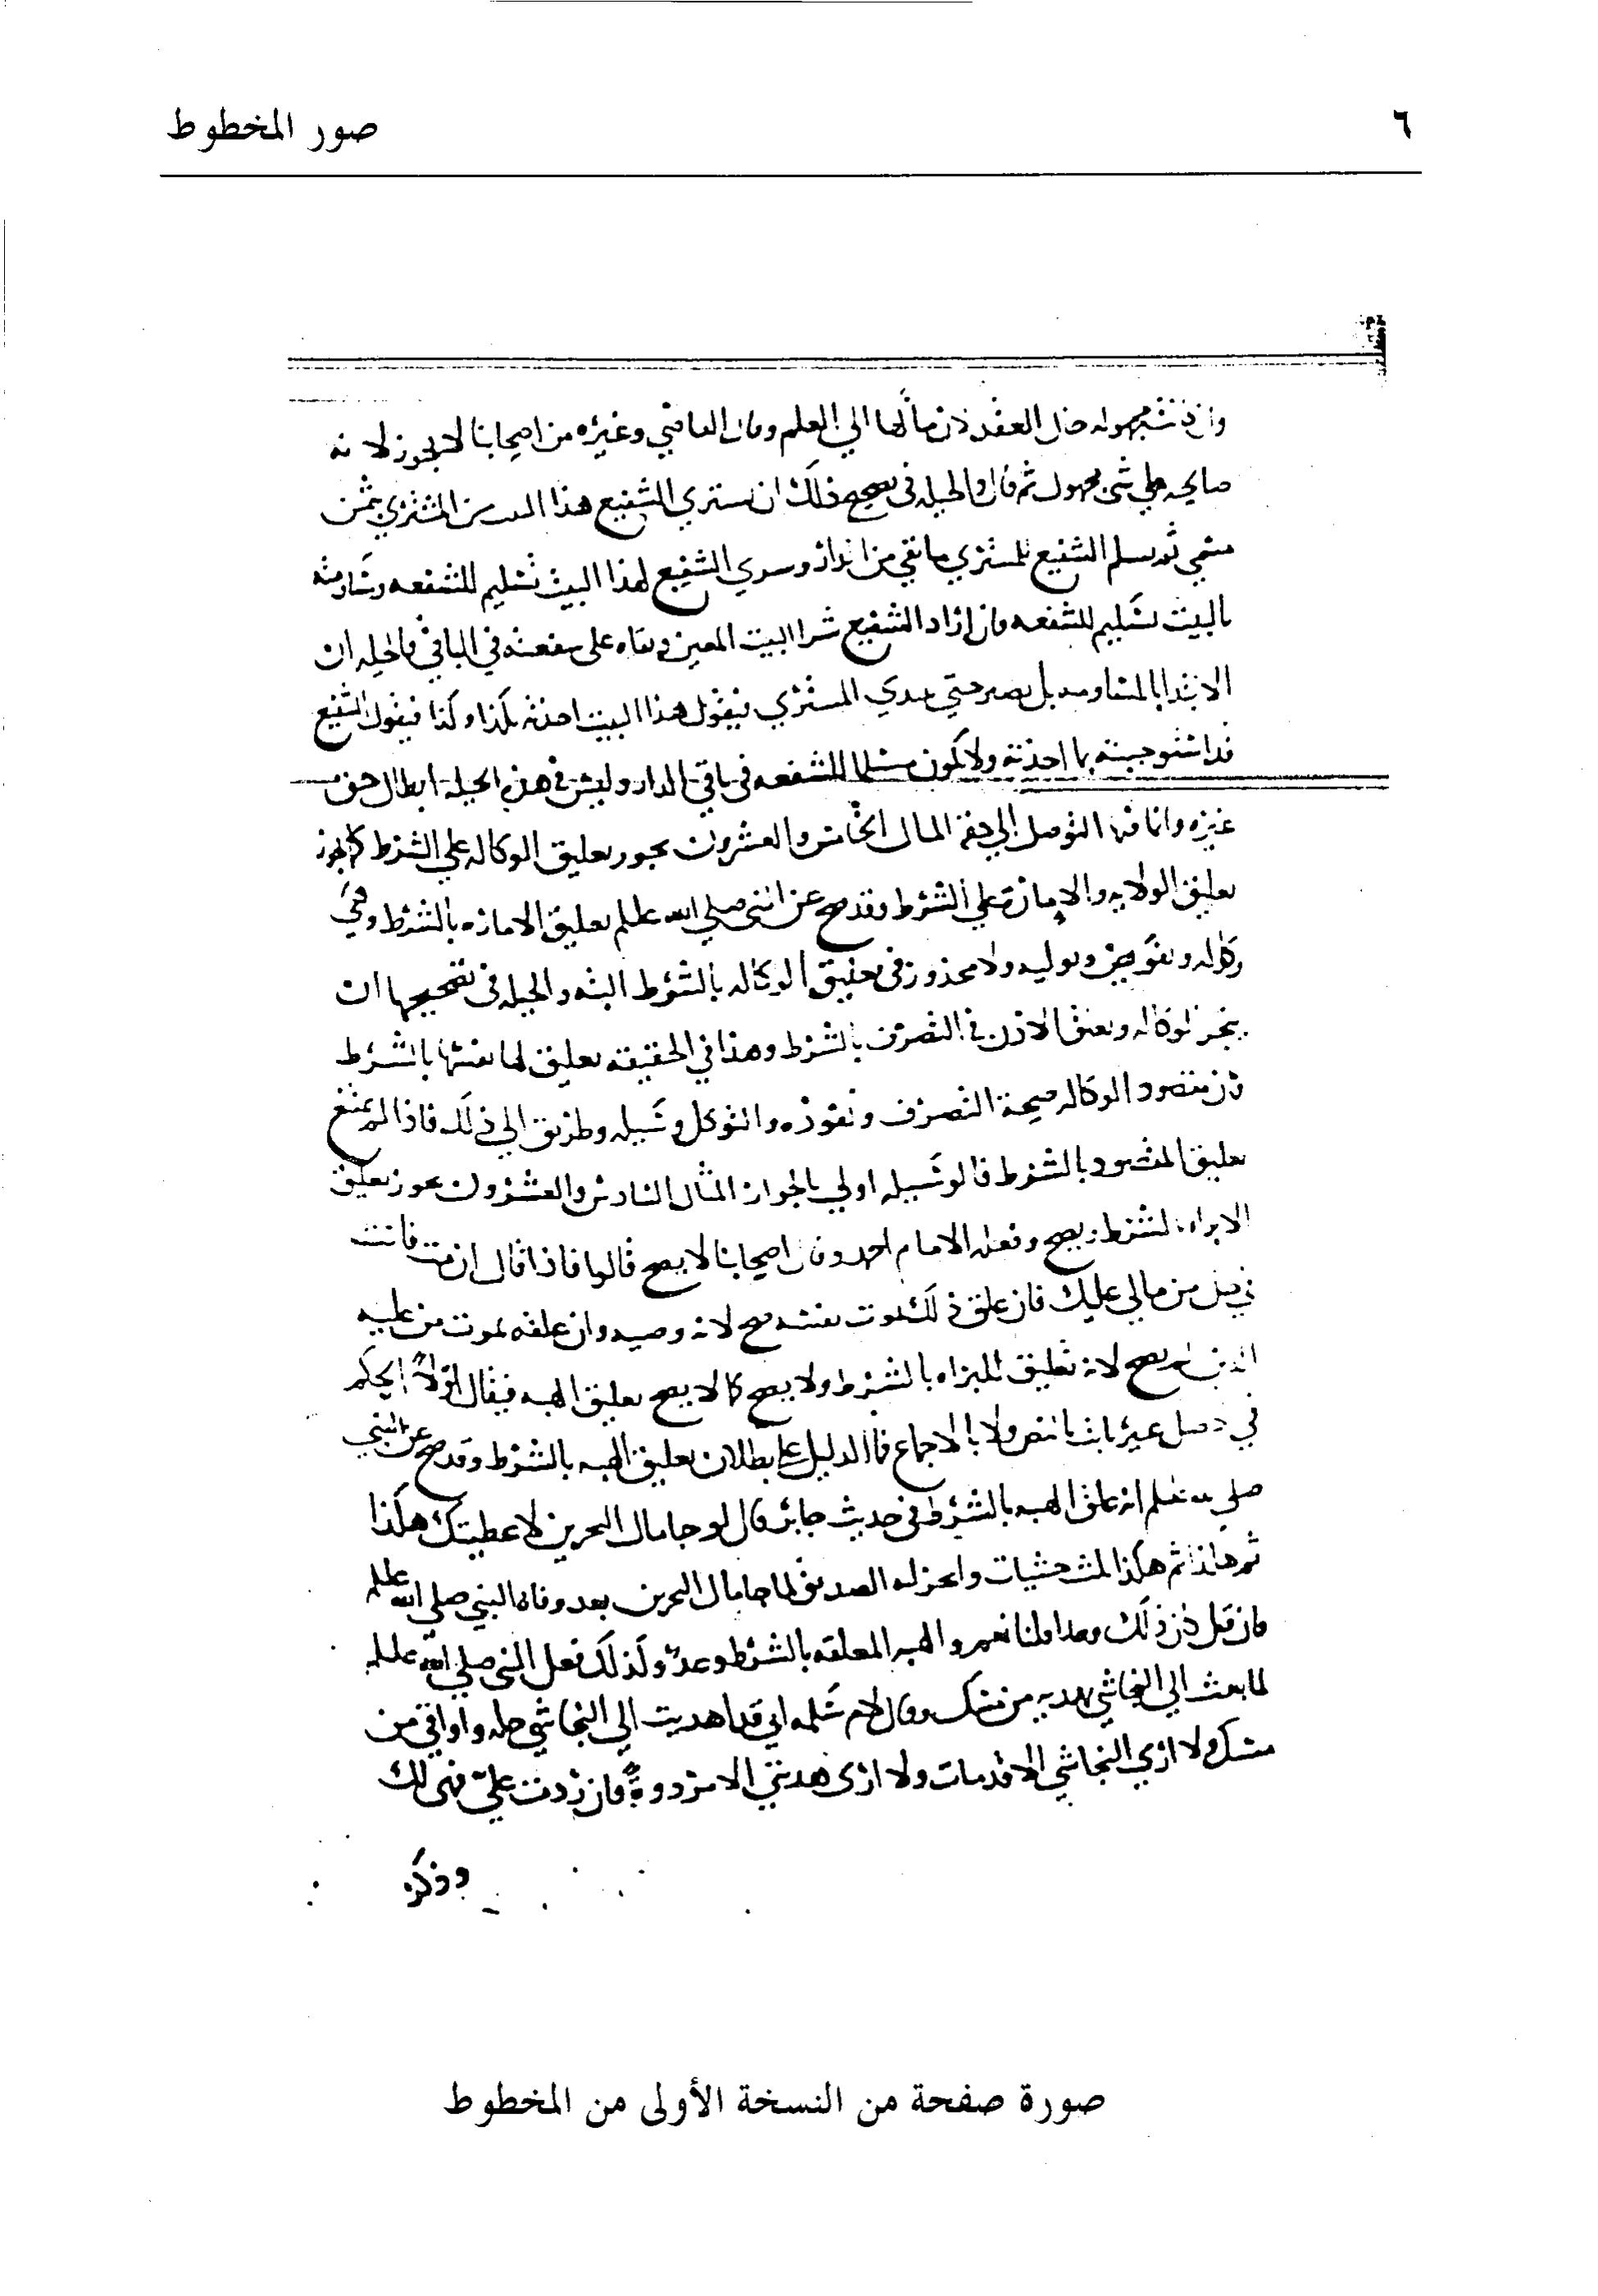 ٦
صور المخطوط
وان كانت مجهوله حال العقد لان مآلها الي العلم وقال القاضي وغيره من اصحابنا لا يجوز لانه
صالحه علي شي مجهول ثم قال والحيله في تصحيح ذلك ان يشتري الشفيع هذا البيت من المشتري بثمن
مسمي ثم يسلم الشفيع للمشتري ما بقي من الدار وشري الشفيع لهذا البيت تسليم للشفعه ومساومته
بالبيت تسليم للشفعه فان اراد الشفيع شرا البيت المعين وبقاه على شفعته في الباقي فالحيله ان
لا يبتدا بالمساومه بل يصبر حتي يبدي المشتري فيقول هذا البيت اخذته بكذا وكذا فيقول الشفيع
قد استوجبته بما اخذته ولا يكون مسلما للشفعه في باقي الدار وليس في هذه الحيله ابطال حق
غيره وانما فيها التوصل الي حقه المثال الخامس والعشرون يجوز تعليق الوكاله علي الشرط كما يجوز
تعليق الولايه والاماره علي الشرط وقد صح عن النبي صلي الله عليه وسلم تعليق الاماره بالشرط وهي
وكاله وتفويض وتوليه ولا محذور في تعليق الوكاله بالشرط البته والحيله في تصحيحها ان
ينجز الوكاله ويعلق الاذن في التصرف بالشرط وهذا في الحقيقه تعليق لها نفسها بالشرط
فان مقصود الوكاله صحة التصرف ونفوذه والتوكل وسيله وطريق الي ذلك فاذا لم يمتنع
تعليق المقصود بالشرط فالوسيله اولي بالجواز المثال السادس والعشرون يجوز تعليق
الابراء بالشرط ويصح وفعله الامام احمد وقال اصحابنا لا يصح قالوا فاذا قال ان مت فانت
في حل من مالي عليك فان علق ذلك بموت نفسه صح لانه وصيه وان علقه بموت من عليه
الدين لم يصح لانه تعليق للبراه بالشرط ولا يصح كما لا يصح تعليق الهبه فيقال اولاً الحكم
في الاصل غير ثابت بالنص ولا بالاجماع فما الدليل علي بطلان تعليق الهبه بالشرط وقد صح عن النبي
صلي الله عليه وسلم انه علق الهبه بالشرط في حديث جابر قال لو جا مال البحرين لاعطيتك هكذا
ثم هكذا ثم هكذا ثلث حثيات وانجز له الصديق لما جا مال البحرين بعد وفاه النبي صلي الله عليه وسلم
فان قيل كان ذلك وعدا قلنا نعم والهبه المعلقه بالشرط وعد وكذلك فعل النبي صلي الله عليه وسلم
لما بعث الي النجاشي بهديه من مسك وقال لام سلمه اني قد اهديت الي النجاشي حله واواقي من
مسك ولا اري النجاشي الا قد مات ولا ارى هديتي الا مردودة فان ردت علي فهي لك
وذكر
صورة صفحة من النسخة الأولى من المخطوط